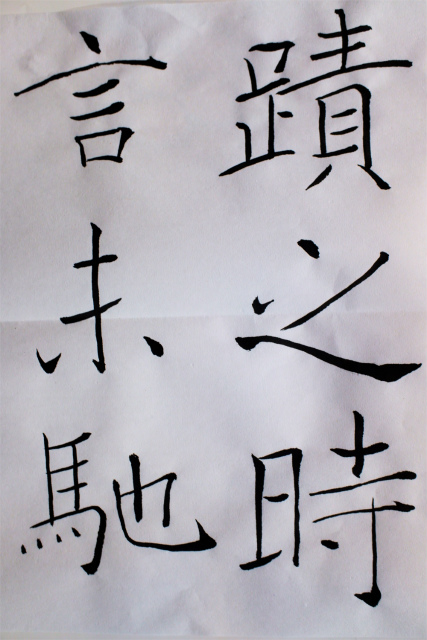 蹟之時
言未馳